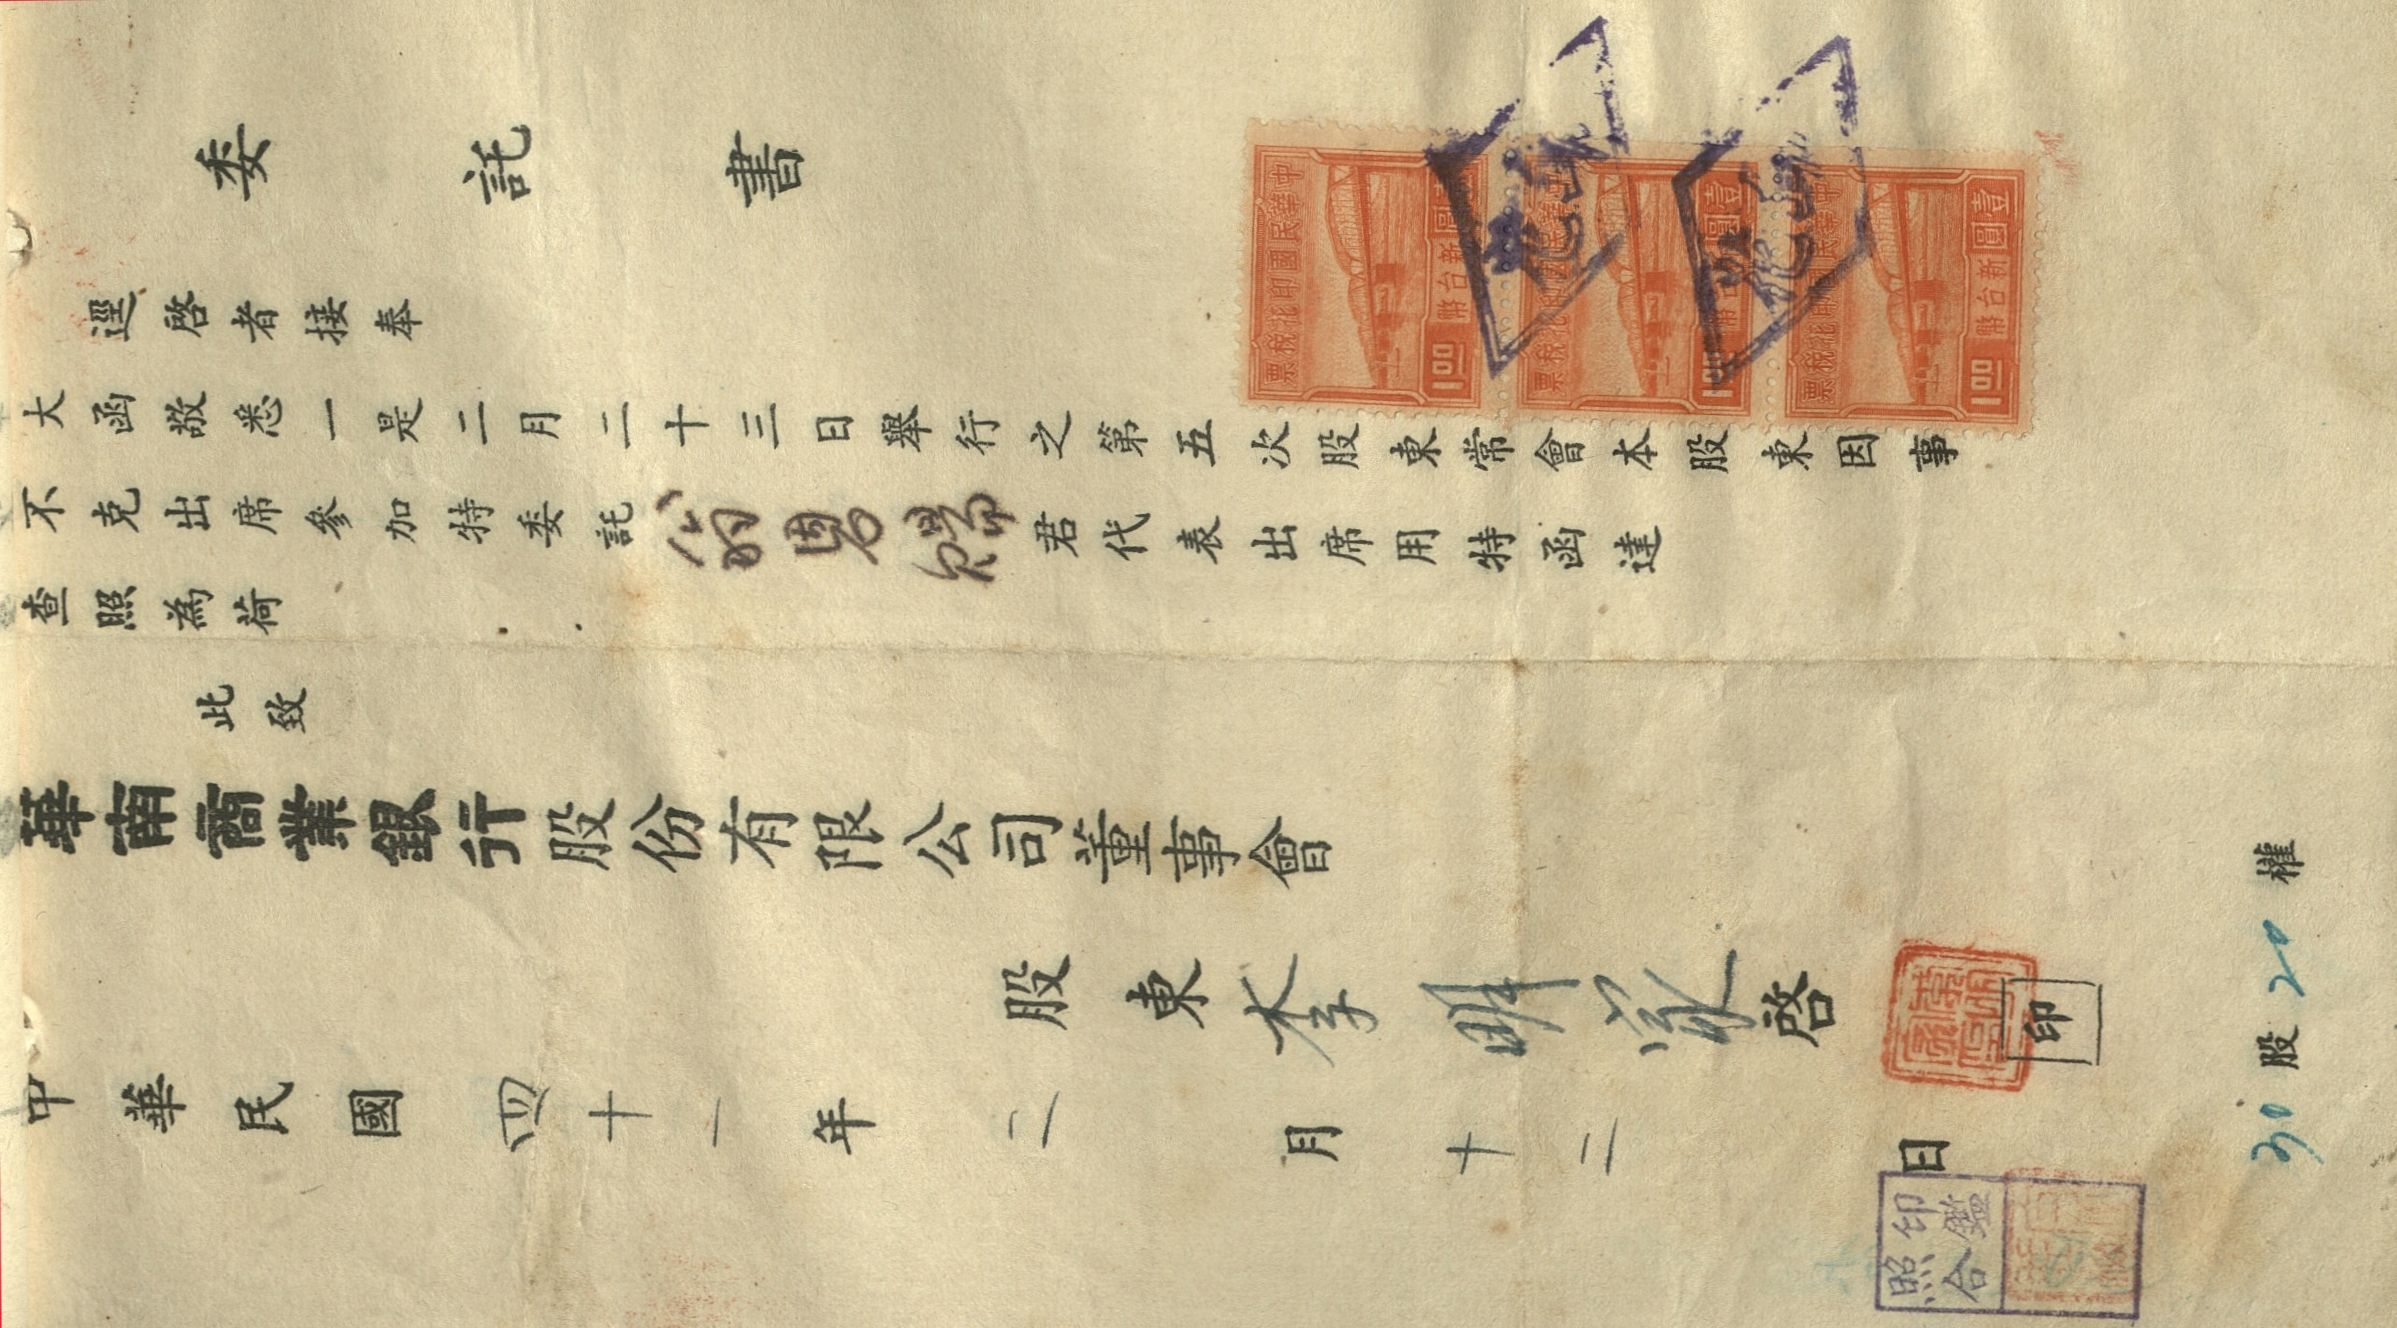 委託書
逕啓者接奉
大函敬悉一是二月二十三日舉行之第五次股東常會本股東因事
不克出席參加特委託翁恩賜君代表出席用特函達
查照為荷
此致
華南商業銀行股份有限公司董事會
股東李明家啓
印
中華民國四十一年二月十二日
30股20權
印鑑
照合
中華民國印花稅票
壹圓
新台幣
1.00
中華民國印花稅票
壹圓
新台幣
1.00
中華民國印花稅票
壹圓
新台幣
1.00